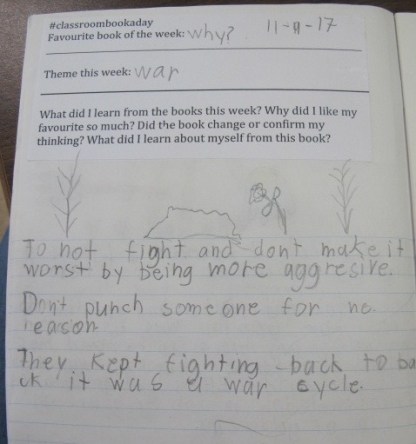 #classroombookaday
Favourite book of the week: Why? 11-9-17
Theme this week: war
What did I learn from the books this week? Why did I like my
favourite so much? Did the book change or confirm my
thinking? What did I learn about myself from this book?
To not fight and dont make it
worst by being more aggresive.
Dont punch someone for no
reason
They kept fighting back to ba
ck it was a war cycle.